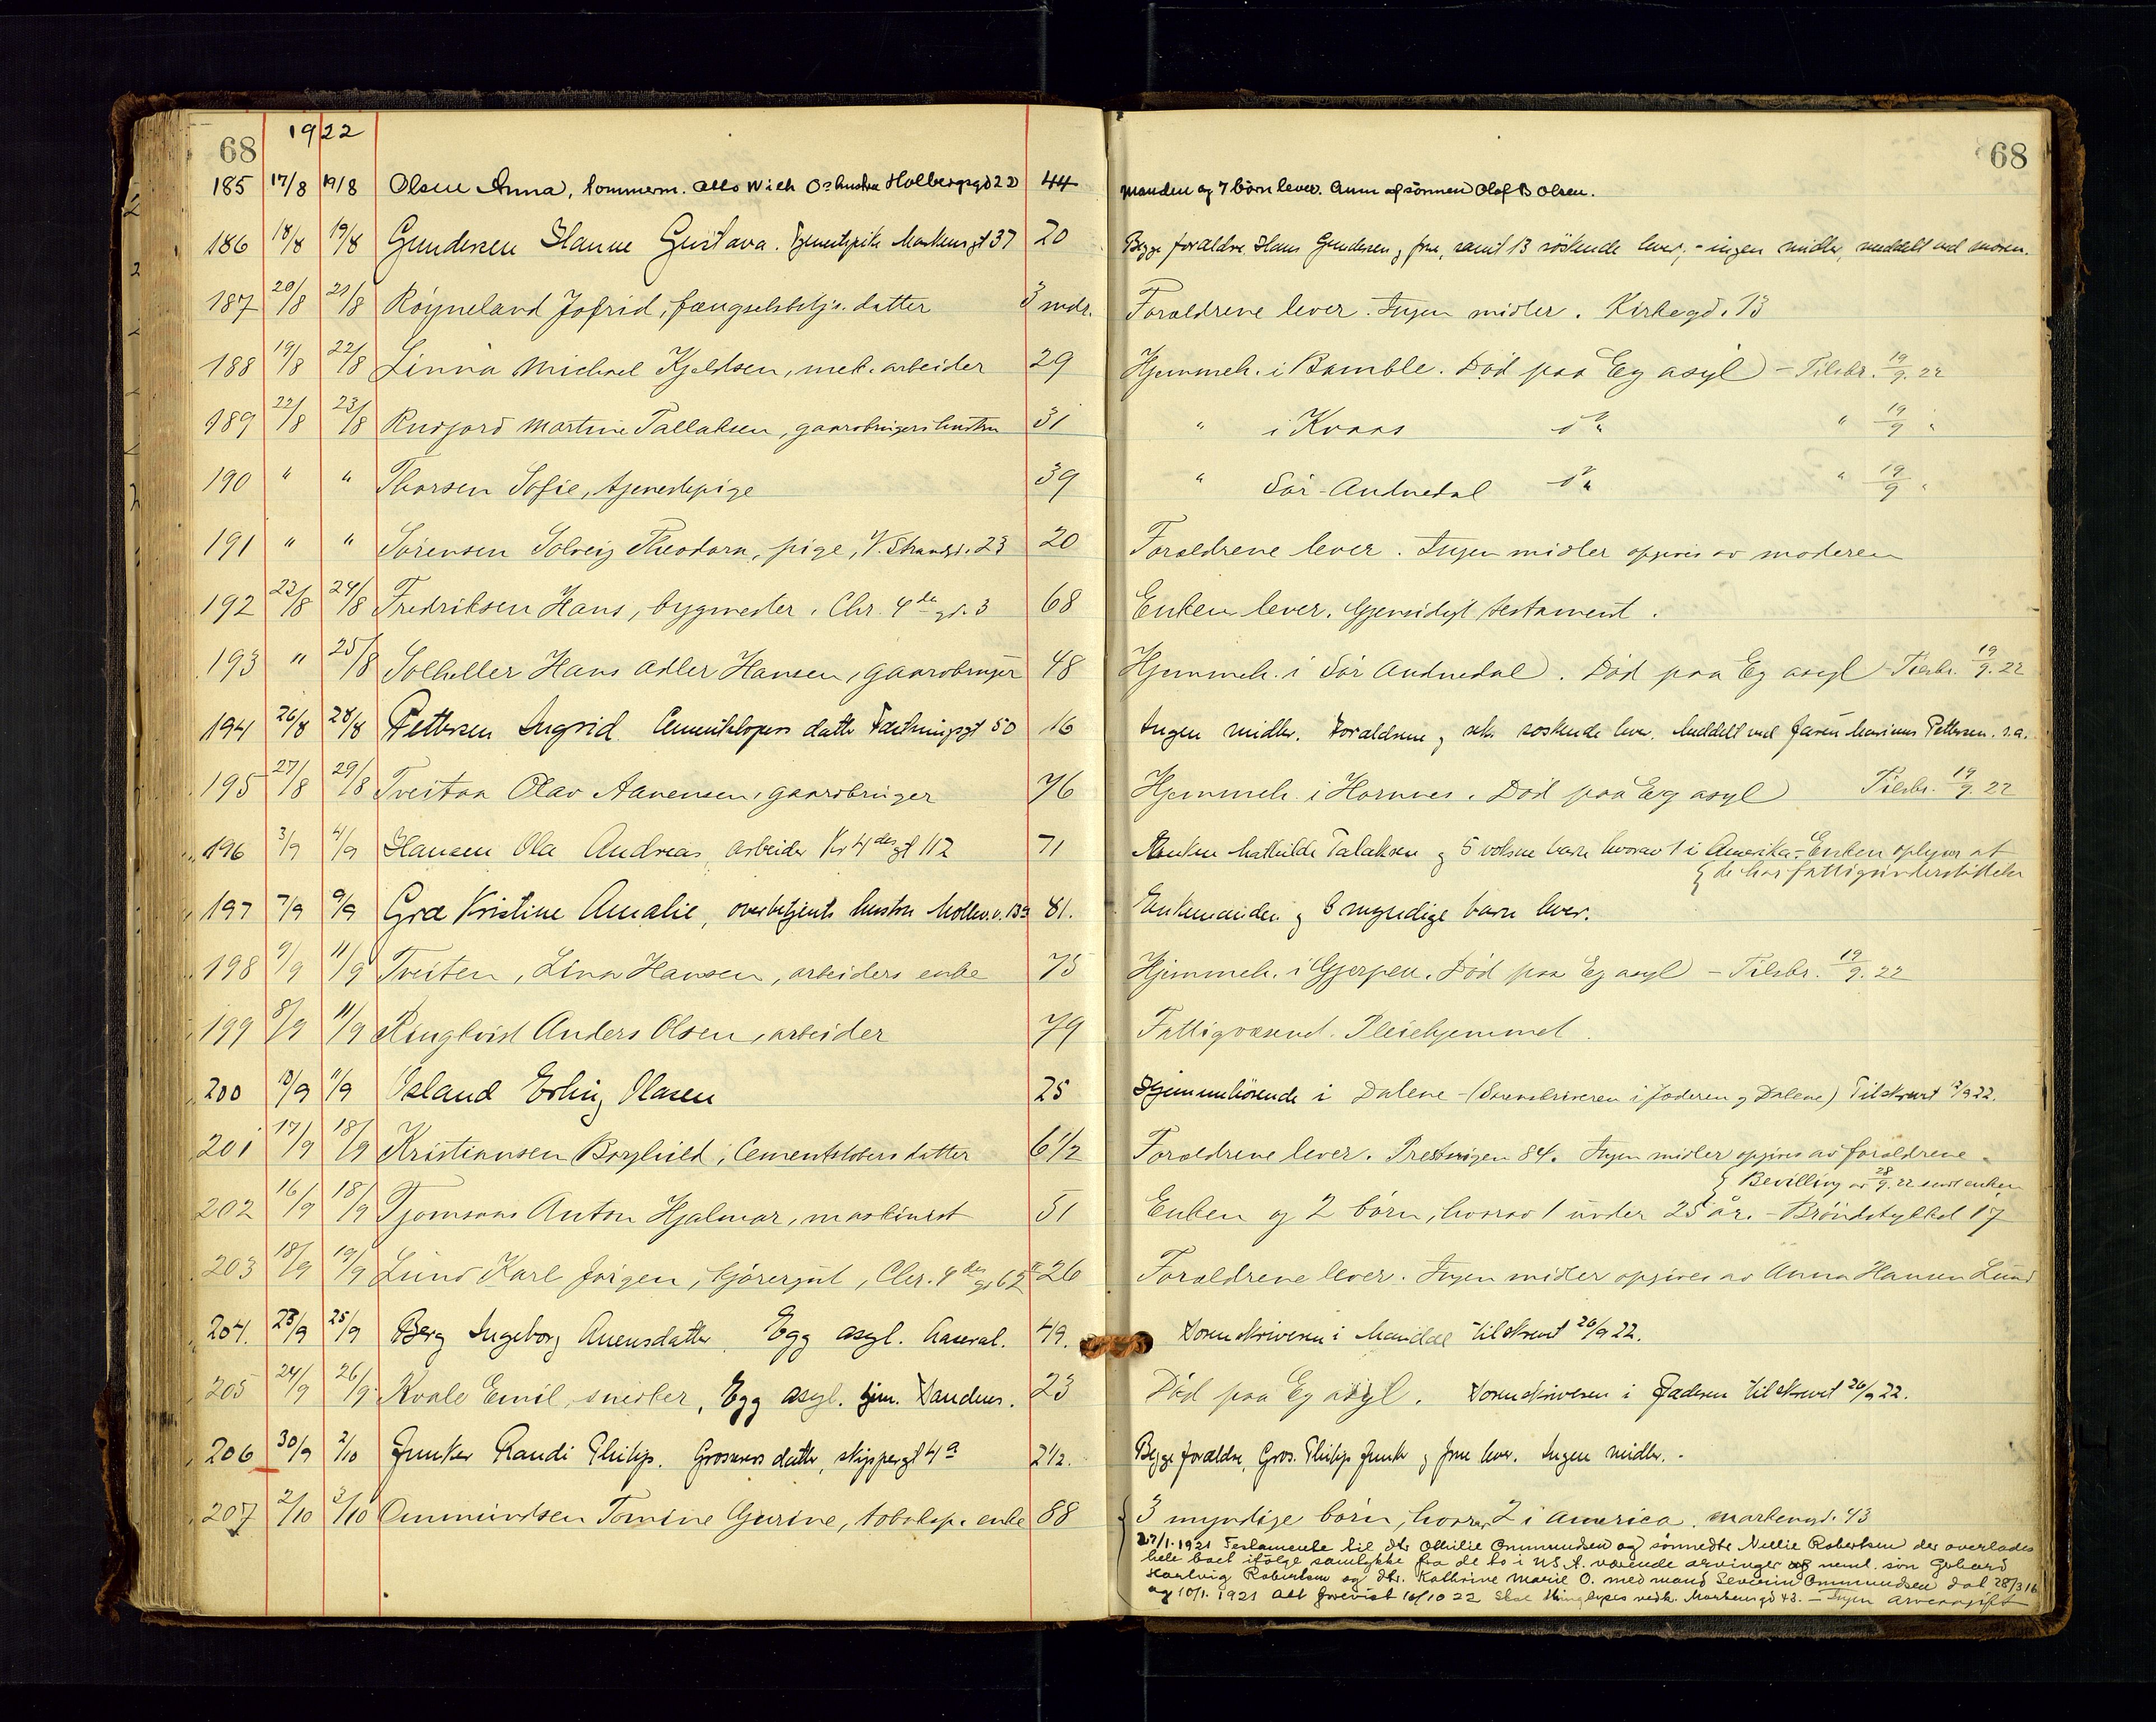 68 1922 68
185 17/8 19/8 Olsen Anna, tømmerm. Holbergsgd 22 44 manden og 7 børn lever. Anm af sønnen Olaf B Olsen.
186 18/8 19/8 Gundersen Hanne Gustava. Markensgt 37 20 Begge forældre, Hans Gundersen og frue, samt 13 søskende lever, - ingen midler, meddelt ved moren.
187 20/8 21/8 Røyneland Jofrid, fængselsbetj. datter 3 mdr. Forældrene lever. Ingen midler. Kirkegd. 13
188 19/8 22/8 Linna Michael Kjeldsen, mek. arbeider 29 Hjemmeh. i Bamble. Død paa Eg asyl - Tilskr. 19/9. 22
189 22/8 23/8 Rudjord Martine Tallaksen, gaardbrugers hustru 31 " i Kvaas do " 19/9 "
190 " " Thorsen Sofie, tjenestepige 39 " Sør-Audnedal do " 19/9 "
191 " " Sørensen Solveig Theodora, pige, V. Strandgd. 23 20 Forældrene lever. Ingen midler opgives av moderen
192 22/8 24/8 Fredriksen Hans, bygmester. Chr. 4de gd. 3 68 Enken lever. Gjensidigt testament.
193 " 25/8 Solheller Hans Adler Hansen, gaardbruger 48 Hjemmeh. i Sør Audnedal. Død paa Eg asyl - Tilskr. 19/9. 22
194 26/8 28/8 Pettersen Ingrid Cementstøpers datter Fæstningsgt 50 16 Ingen midler. Forældrene og seks søskende lever. Meddelt ved faren Marinus Pettersen. s.a.
195 27/8 29/8 Tveitaa Olav Aanensen, gaardbruger 76 Hjemmeh. i Hornnes. Død paa Eg asyl Tilskr. 19/9. 22
196 3/9 4/9 Hansen Ola Andreas, arbeider Kr 4des gt 112 71 Enken Mathilde Talaksen og 5 voksne barn hvorav 1 i Amerika. - Enken oplyser at
de har fattigunderstøttelse
197 7/9 9/9 Gra Kristine Amalie, overbetjents hustru 81. Enkemanden og 8 myndige barn lever.
198 9/9 11/9 Tveiten, Lina Hansen, arbeiders enke 75 Hjemmeh. i Gjerpen. Død paa Eg asyl - Tilskr. 19/9. 22
199 8/9 11/9 Ringkvist Anders Olsen, arbeider 79 Fattigvæsenet. Pleiehjemmet.
200 10/9 11/9 Osland Erling Olasen 25 Hjemmehørende i Dalene - (Sorenskriveren i Jæderen og Dalene) Tilskrevet 12/9 22.
201 17/9 18/9 Kristiansen Borghild, Cementstøbers datter 6 1/2 Forældrene lever. 84. Ingen midler opgives av forældrene.
Bevilling av 28/9. 22 sendt enken
202 16/9 18/9 Tjomsaas Anton Hjalmar, maskinist 51 Enken og 2 børn, hvorav 1 under 25 år. - Brøndstykket 17
203 18/9 19/9 Lund Karl Jørgen, kjøregut, Chr. 4des gt 62 26 Forældrene lever. Ingen midler opgives av Anna Hansen Lund
204. 23/9 25/9 Berg Ingeborg Anensdatter. Egg asyl. Aaseral. 49. Sorenskriveren i Mandal tilskrevet 26/9 22.
205 24/9 26/9 Kvale Emil, snedker, Egg asyl. hjm. Sandnes. 23 Død paa Eg asyl. Sorenskriveren i Jæderen tilskrevet 26/9 22.
206 30/9 2/10 Junker Randi Philip. Grosserers datter, skippergt 4a 2 1/2. Begge forældre, Gros. Philip Junker og frue lever. Ingen midler. -
207 2/10 3/10 Ommundsen Tomine Gurine, tobaksp. enke 88 3 myndige børn, hvorav 2 i America. Markensgd. 43
27/1. 1921 Testamente til dtr Othilie Ommundsen og sønnedtr Nellie Robertsen der overlades
hele boet ifølge samtykke fra de to i U.S.A. værende arvinger nemt. søn Gerhard
Hartvig Robertsen og dtr. Kathrine Marie O. med mand Severin Ommundsen dat 28/3 16
og 10/1. 1921 Alt forevist 16/10 22 Skal thinglyses vedk. Markensgd 43. - Ingen arveavgift